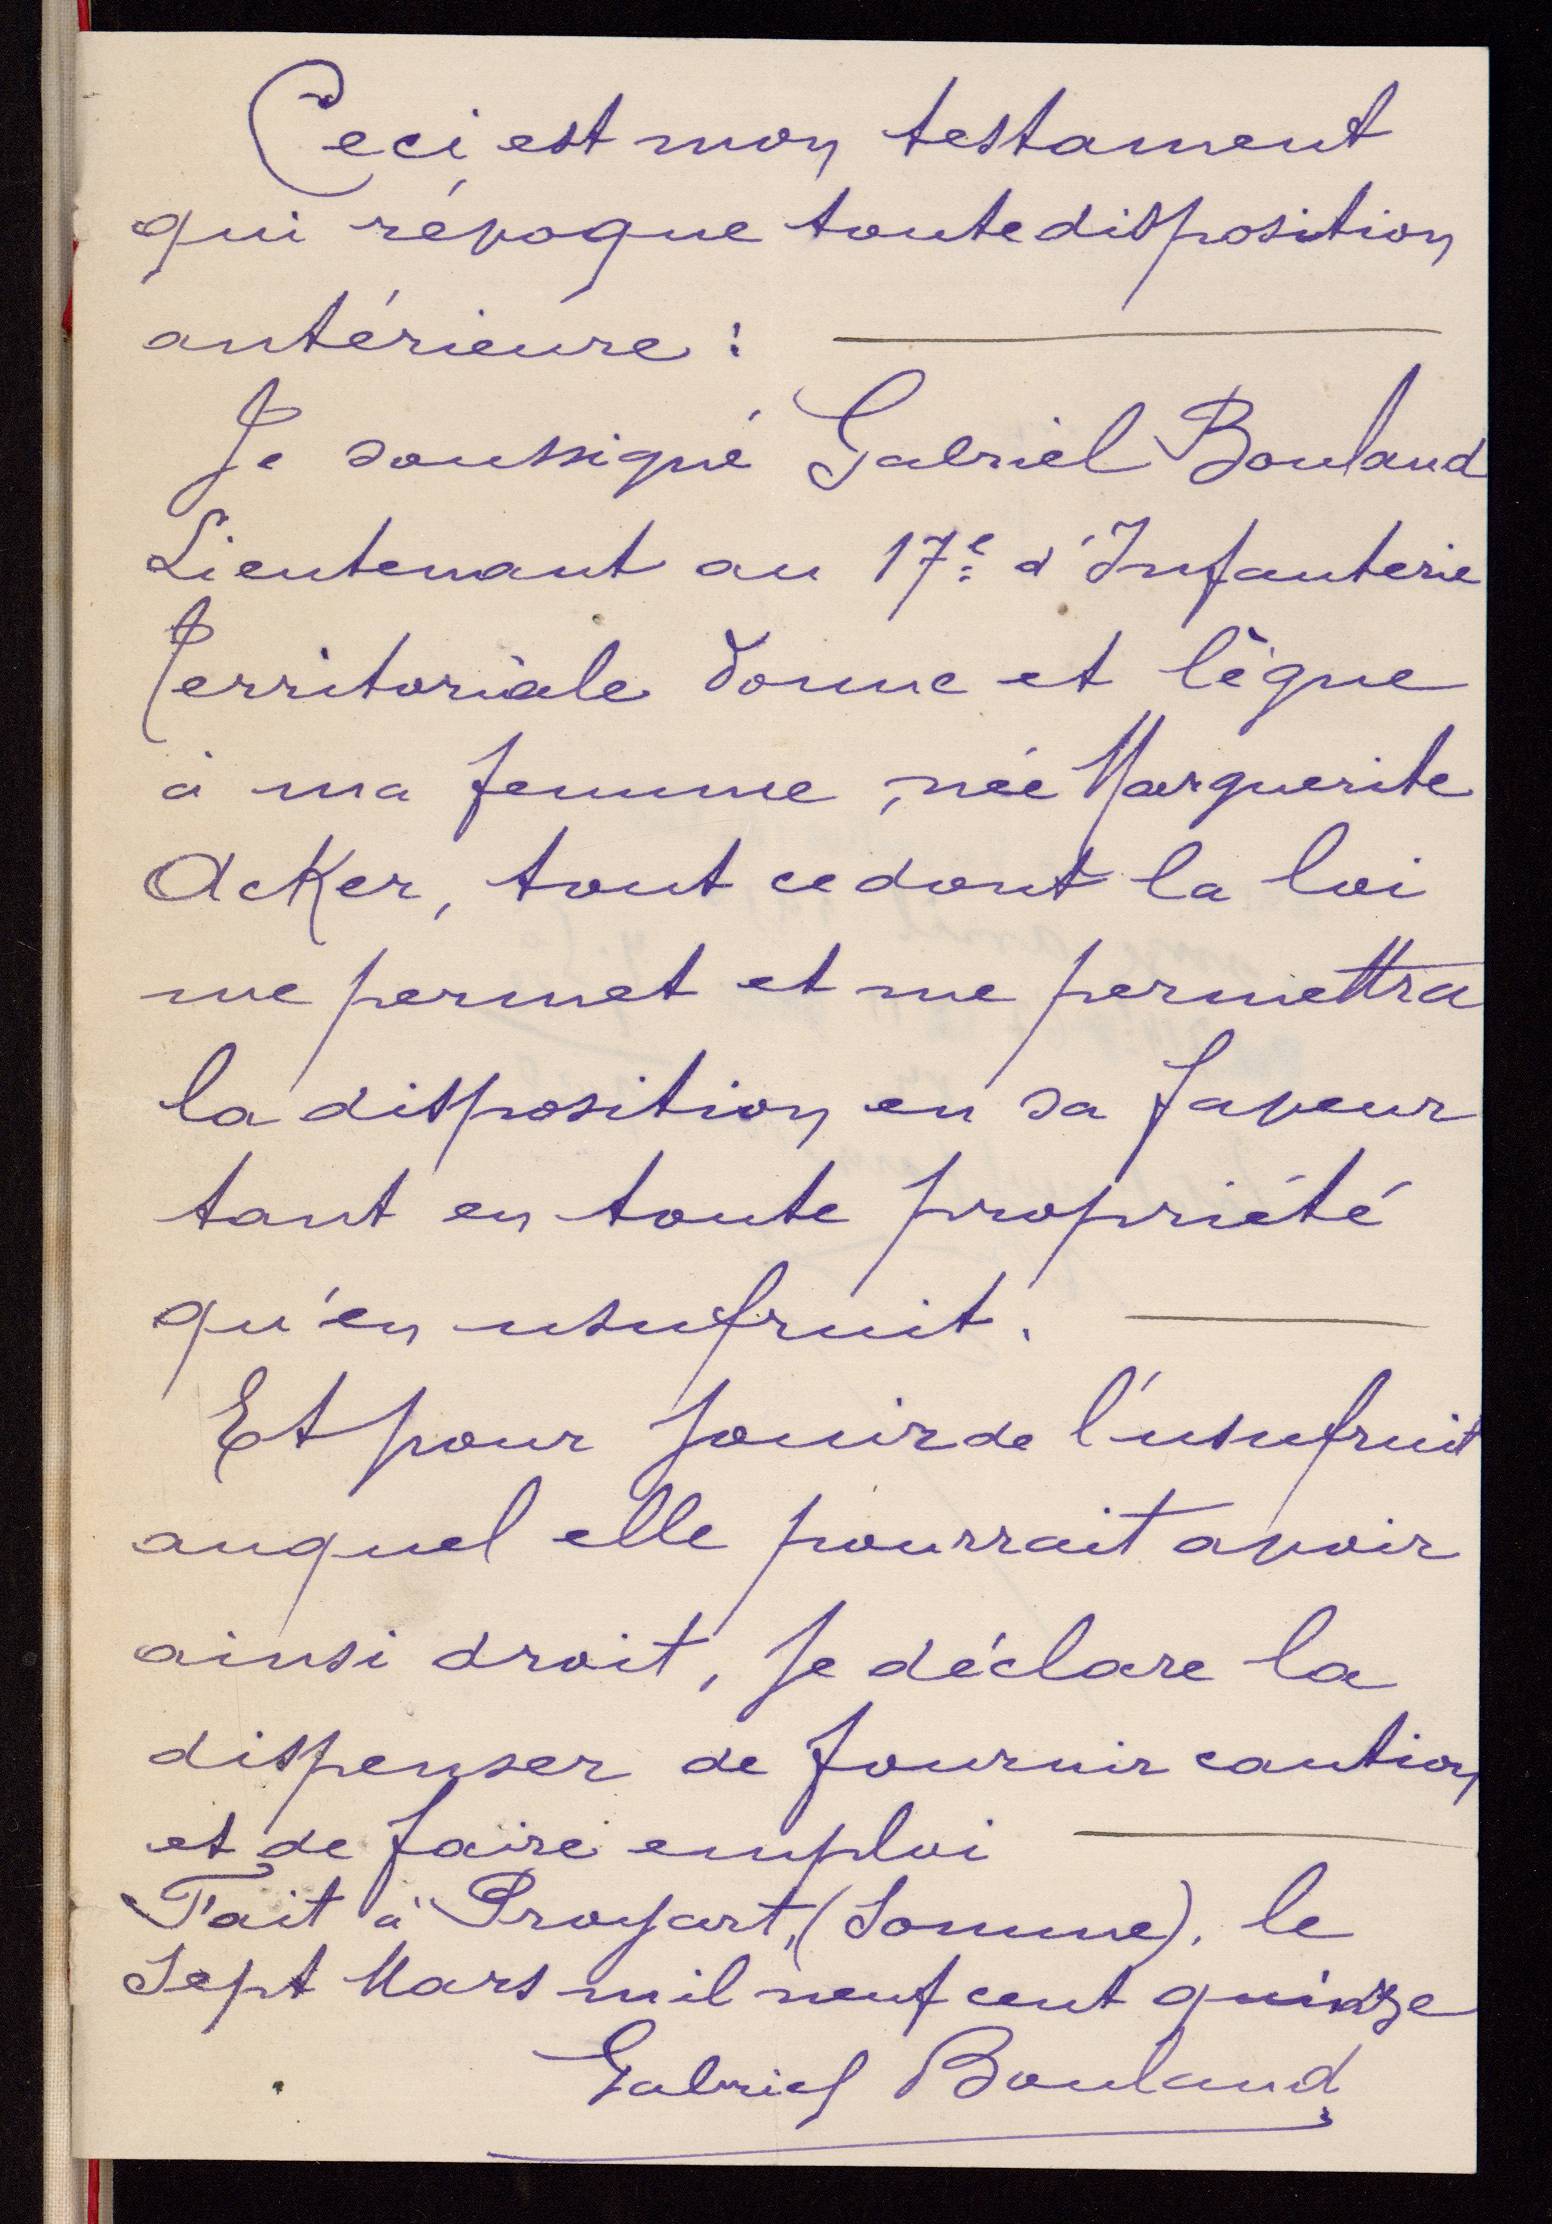 Ceci est mon testament
qui révoque toute disposition
antérieure :
Je soussigné Gabriel Bouland
Lieutenant au 17e d'Infanterie
Territoriale donne et lègue
à ma femme, née Marguerite
Acker, tout ce dont la loi
me permet et me permettra
la disposition en sa faveur
tant en toute propriété
qu'en usufruit.
Et pour jouir de l'usufruit
auquel elle pourrait avoir
ainsi droit, je déclare la
dispenser de fournir caution
et de faire emploi
Fait à Proyart, (Somme), le
Sept Mars mil neuf cent quinze
Gabriel Bouland